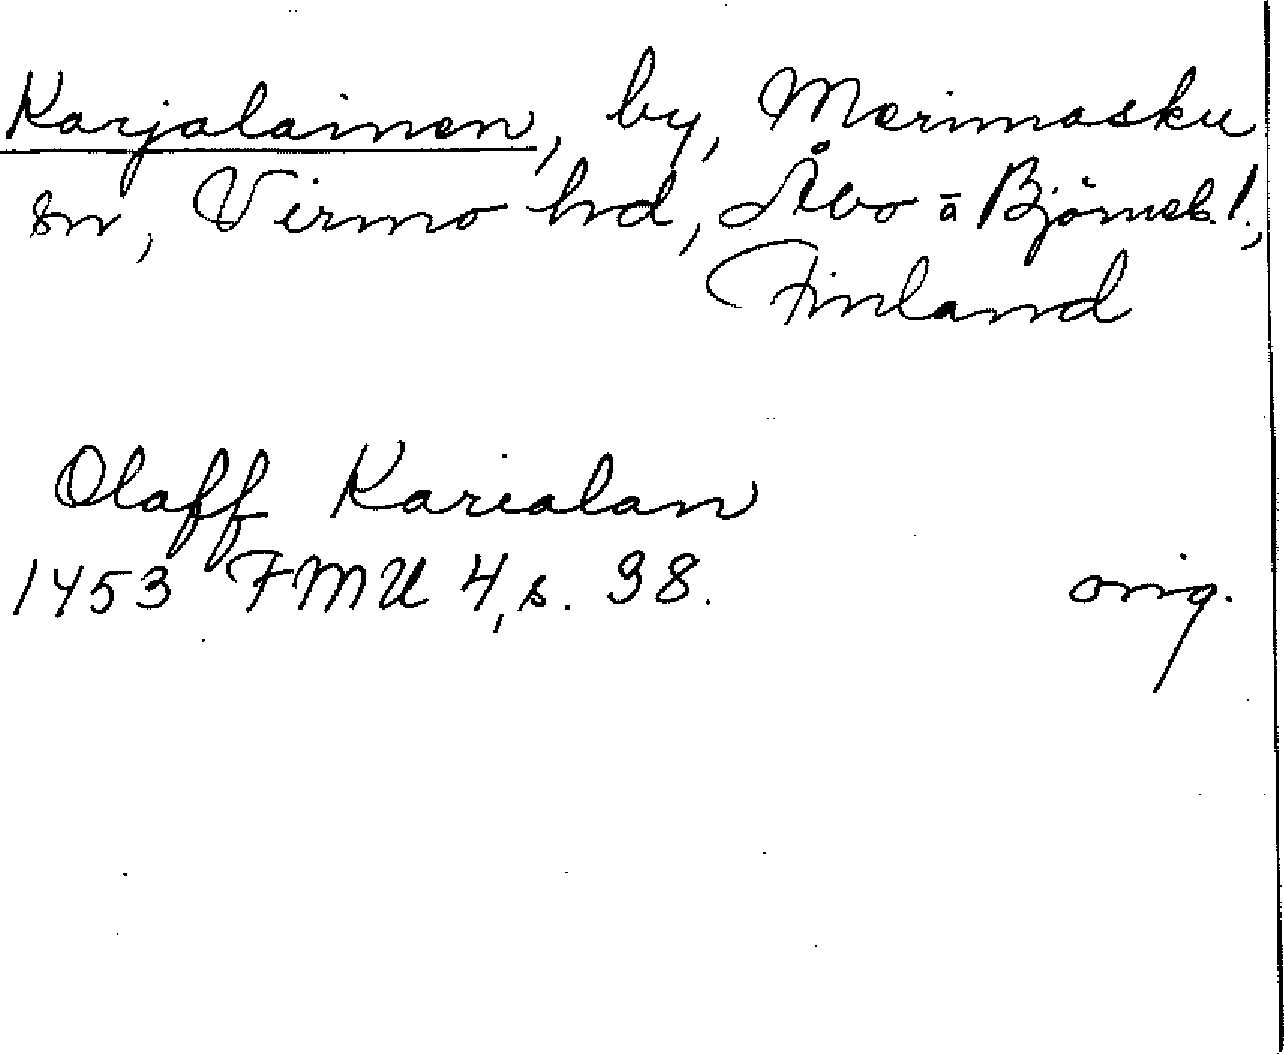 Karjalainen, by, Merimasku
sn, Virmo hd, Åbo ā Björneb.l.,
Finland
Olaff Karialan
1453 FMU 4, s. 38.
orig.